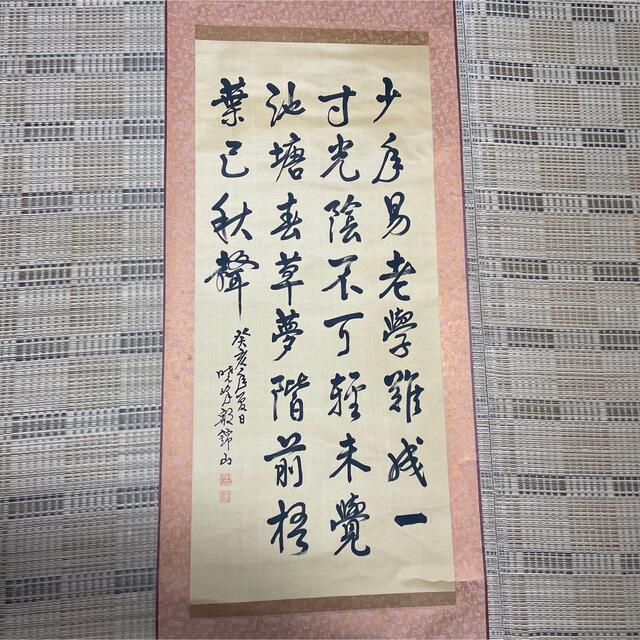 少年易老學難成一
寸光陰不可輕未覺
池塘春草夢階前梧
葉已秋聲
癸亥年夏日
曉峰敬錦山